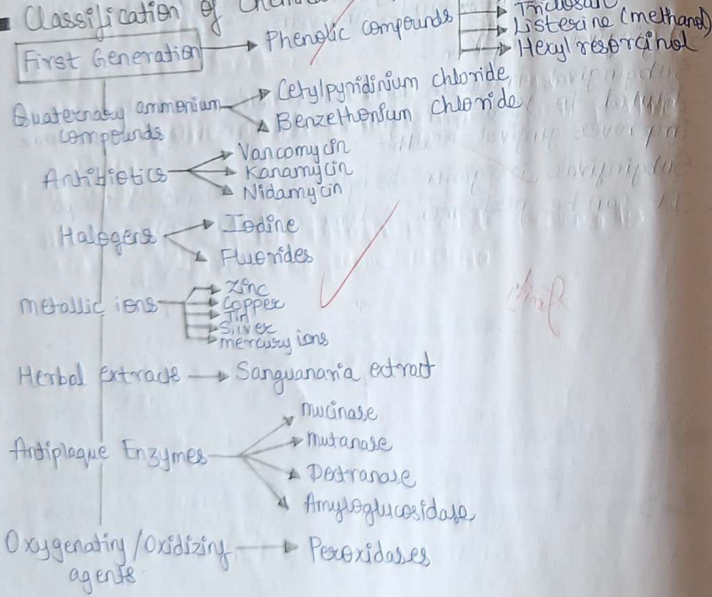 Classification of
First Generation
Phenolic compounds
Triclosan
Listerine (methanol)
Hexylresorcinol
Quaternary ammonium
compounds
Cetylpyridinium chloride
Benzethonium chloride
Antibiotics
Vancomycin
Kanamycin
Nidamycin
Halogens
Iodine
Fluorides
metallic ions
Zinc
Copper
Tin
Silver
mercury ions
Herbal extracts
Sanguanaria extract
Antiplaque Enzymes
mucinase
mutanase
Dextranase
Amyloglucosidase
Oxygenating/Oxidizing
agents
Peroxidases